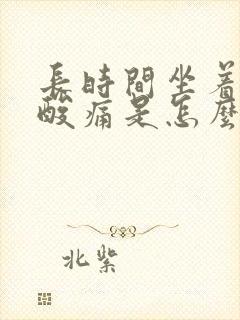 長時間坐着
酸痛是怎麼
北紫